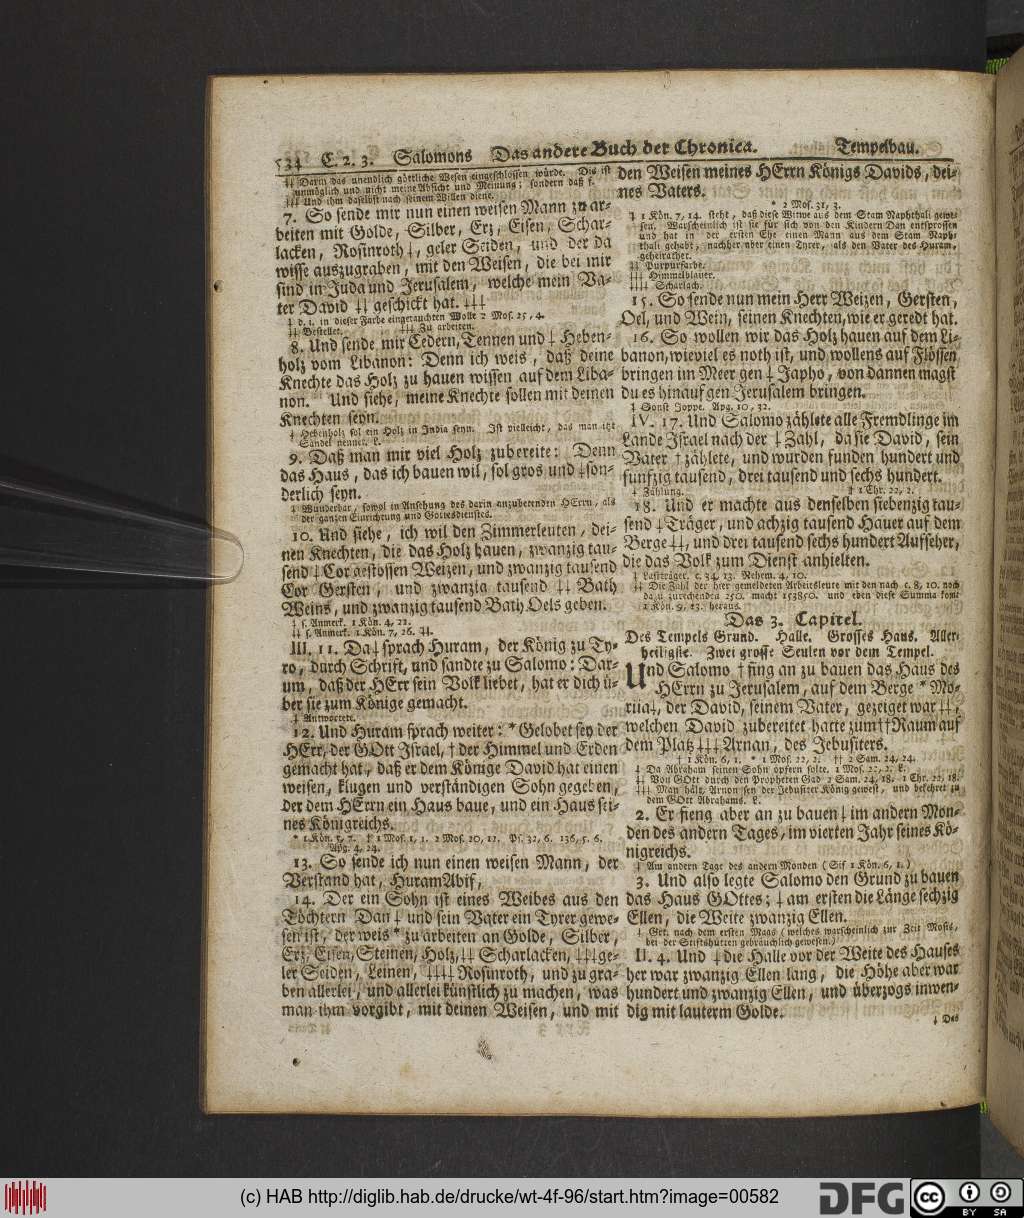 534 C. 2. 3. Salomons Das andere Buch der Chronica. Tempelbau.
‡‡ Darin das unendlich göttliche Wesen eingeschlossen würde. Dis ist
unmöglich und nicht meine Absicht und Meinung; sondern daß s.
‡‡‡ Und ihm daselbst nach seinem Willen diene.
7. So sende mir nun einen weisen Mann zu ar-
beiten mit Golde, Silber, Erz, Eisen, Schar-
lacken, Rosinroth ‡, geler Seiden, und der da
wisse auszugraben, mit den Weisen, die bei mir
sind in Juda und Jerusalem, welche mein Va-
ter David ‡‡ geschickt hat. ‡‡‡
‡ d. i. in dieser Farbe eingetauchten Wolle 2 Mos. 25, 4.
‡‡ Bestellet. ‡‡‡ Zu arbeiten.
8. Und sende mir Cedern, Tennen und ‡ Heben-
holz vom Libanon: Denn ich weis, daß deine
Knechte das Holz zu hauen wissen auf dem Liba-
non. Und siehe, meine Knechte sollen mit deinen
Knechten seyn.
‡ Hebenholz sol ein Holz in India seyn. Ist vielleicht, das man itzt
Sandel nennet. L.
9. Daß man mir viel Holz zubereite: Denn
das Haus, das ich bauen wil, sol gros und ‡ son-
derlich seyn.
‡ Wunderbar, sowol in Ansehung des darin anzubetenden HErrn, als
der ganzen Einrichtung und Gottesdienstes.
10. Und siehe, ich wil den Zimmerleuten, dei-
nen Knechten, die das Holz hauen, zwanzig tau-
send ‡ Cor gestossen Weizen, und zwanzig tausend
Cor Gersten, und zwanzig tausend ‡‡ Bath
Weins, und zwanzig tausend Bath Oels geben.
‡ s. Anmerk. 1 Kön. 4, 22.
‡‡ s. Anmerk. 1 Kön. 7, 26. ‡‡.
III. 11. Da ‡ sprach Huram, der König zu Ty-
ro, durch Schrift, und sandte zu Salomo: Dar-
um, daß der HErr sein Volk liebet, hat er dich ü-
ber sie zum Könige gemacht.
‡ Antwortete.
12. Und Huram sprach weiter: * Gelobet sey der
HErr, der GOtt Israel, † der Himmel und Erden
gemacht hat, daß er dem Könige David hat einen
weisen, klugen und verständigen Sohn gegeben,
der dem HErrn ein Haus baue, und ein Haus sei-
nes Königreichs.
* 1 Kön. 5, 7. † 1 Mos. 1, 1. 2 Mos. 20, 11. Ps. 32, 6. 136, 5. 6.
Apg. 4, 24.
13. So sende ich nun einen weisen Mann, der
Verstand hat, Huram Abif,
14. Der ein Sohn ist eines Weibes aus den
Töchtern Dan ‡ und sein Vater ein Tyrer gewe-
sen ist, der weis * zu arbeiten an Golde, Silber,
Erz, Eisen, Steinen, Holz, ‡‡ Scharlacken, ‡‡‡ ge-
ler Seiden, Leinen, ‡‡‡‡ Rosinroth, und zu gra-
ben allerlei, und allerlei künstlich zu machen, was
man ihm vorgibt, mit deinen Weisen, und mit
den Weisen meines HErrn Königs Davids, dei-
nes Vaters.
* 2 Mos. 31, 3.
‡ 1 Kön. 7, 14. steht, daß diese Witwe aus dem Stam Naphthali gewe-
sen. Warscheinlich ist sie für sich von den Kindern Dan entsprossen
und hat in der ersten Ehe einen Mann aus dem Stam Naph-
thali gehabt, nachher aber einen Tyrer, als den Vater des Huram,
geheirathet.
‡‡ Purpurfarbe.
‡‡‡ Himmelblauer.
‡‡‡‡ Scharlach.
15. So sende nun mein Herr Weizen, Gersten,
Oel, und Wein, seinen Knechten, wie er geredt hat.
16. So wollen wir das Holz hauen auf dem Li-
banon, wieviel es noth ist, und wollens auf Flössen
bringen im Meer gen ‡ Japho, von dannen magst
du es hinauf gen Jerusalem bringen.
‡ Sonst Joppe. Apg. 10, 32.
IV. 17. Und Salomo zählete alle Fremdlinge im
Lande Israel nach der ‡ Zahl, da sie David, sein
Vater † zählete, und wurden funden hundert und
funfzig tausend, drei tausend und sechs hundert.
‡ Zählung. † 1 Chr. 22, 2.
18. Und er machte aus denselben siebenzig tau-
send ‡ Träger, und achzig tausend Hauer auf dem
Berge ‡‡, und drei tausend sechs hundert Aufseher,
die das Volk zum Dienst anhielten.
‡ Lastträger. c. 34, 13. Nehem. 4, 10.
‡‡ Die Zahl der hier gemeldeten Arbeitsleute mit den nach c. 8, 10. noch
dazu zurechenden 250. macht 153850. und eben diese Summa komt
1 Kön. 9, 23. heraus.
Das 3. Capitel.
Des Tempels Grund. Halle. Grosses Haus. Aller-
heiligste. Zwei grosse Seulen vor dem Tempel.
Und Salomo † fing an zu bauen das Haus des
HErrn zu Jerusalem, auf dem Berge * Mo-
riia ‡, der David, seinem Vater, gezeiget war ‡‡,
welchen David zubereitet hatte zum †† Raum auf
dem Platz ‡‡‡ Arnan, des Jebusiters.
† 1 Kön. 6, 1. * 1 Mos. 22, 2. †† 2 Sam. 24, 24.
‡ Da Abraham seinen Sohn opfern solte. 1 Mos. 22, 2. L.
‡‡ Von GOtt durch den Propheten Gad 2 Sam. 24, 18. 1 Chr. 22, 18.
‡‡‡ Man hält, Arnon sey der Jebusiter König gewest, und bekehret zu
dem GOtt Abrahams. L.
2. Er fieng aber an zu bauen ‡ im andern Mon-
den des andern Tages, im vierten Jahr seines Kö-
nigreichs.
‡ Am andern Tage des andern Monden (Sif 1 Kön. 6, 1.)
3. Und also legte Salomo den Grund zu bauen
das Haus GOttes; ‡ am ersten die Länge sechzig
Ellen, die Weite zwanzig Ellen.
‡ Gr. nach dem ersten Maas (welches warscheinlich zur Zeit Mosis,
bei der Stiftshütten gebräuchlich gewesen.)
II. 4. Und ‡ die Halle vor der Weite des Hauses
her war zwanzig Ellen lang, die Höhe aber war
hundert und zwanzig Ellen, und überzogs inwen-
dig mit lauterm Golde.
‡ Das
(c) HAB http://diglib.hab.de/drucke/wt-4f-96/start.htm?image=00582
DFG
cc BY SA